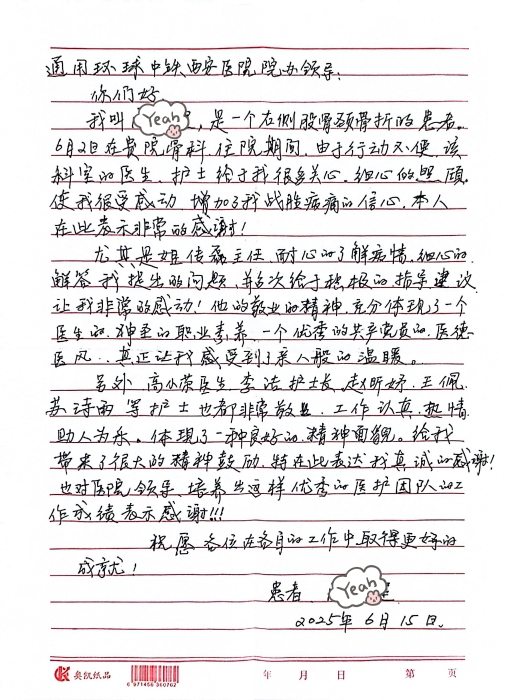 通用环球中铁西安医院院办领导:
你们好
我叫 Yeah ,是一个左侧股骨颈骨折的患者。
6月2日在贵院骨科住院期间,由于行动不便,该
科室的医生、护士给于我很多关心、细心的照顾,
使我很受感动 增加了我战胜疾病的信心,本人
在此表示非常的感谢!
尤其是姬传磊主任,耐心的了解病情,细心的
解答我提出的问题,并多次给于积极的指导建议
让我非常的感动!他的敬业的精神,充分体现了一个
医生的、神圣的职业素养、一个优秀的共产党员的、医德
医风..真正让我感受到了亲人般的温暖。
另外,高小荣医生、李洁护士长、赵昕妤、王佩、
苏诗雨等护士也都非常敬业、工作认真、热情
助人为乐。体现了一种良好的、精神面貌。给我
带来了很大的精神鼓励,特在此表达我真诚的感谢!
也对医院领导、培养出这样优秀的医护团队的工
作成绩表示感谢!!!
祝愿各位在各自的工作中取得更好的
成就!
患者: Yeah
2025年6月15日.
奥凯纸品 6 971456 360762 年 月 日 第 页